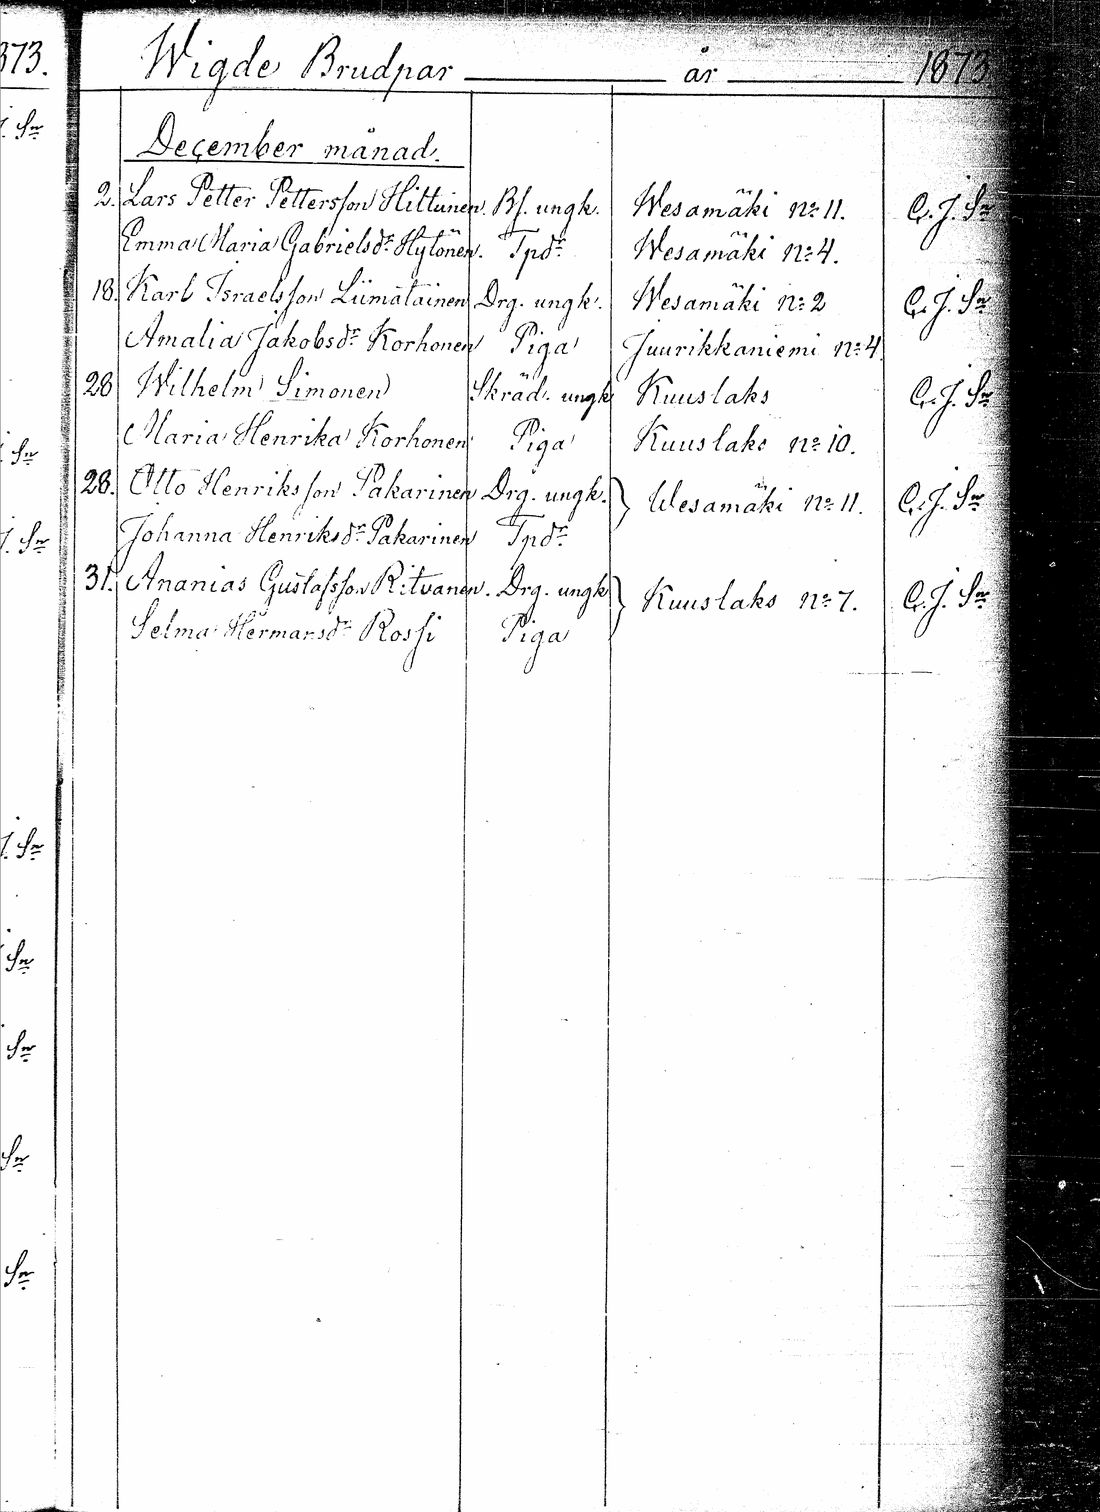 373.
Wigde Brudpar år 1873
December månad.
2. Lars Petter Pettersson Hiltunen. Bf. ungk. Wesamäki No 11. C. J. Sn
Emma Maria Gabrielsdr Hytönen. Tpdr Wesamäki No 4.
18. Karl Israelsson Liimatainen Drg. ungk. Wesamäki No 2 C. J. Sn
Amalia Jakobsdr Korhonen Piga Juurikkaniemi No 4.
28 Wilhelm Simonen Skräd. ungk Kuuslaks C. J. Sn
Maria Henrika Korhonen Piga Kuuslaks No 10.
28. Otto Henriksson Pakarinen Drg. ungk. Wesamäki No 11. C. J. Sn
Johanna Henriksdr Pakarinen Tpdr
31. Ananias Gustafsson Ritvanen. Drg. ungk Kuuslaks No 7. C. J. Sn
Selma Hermansdr Rossi Piga